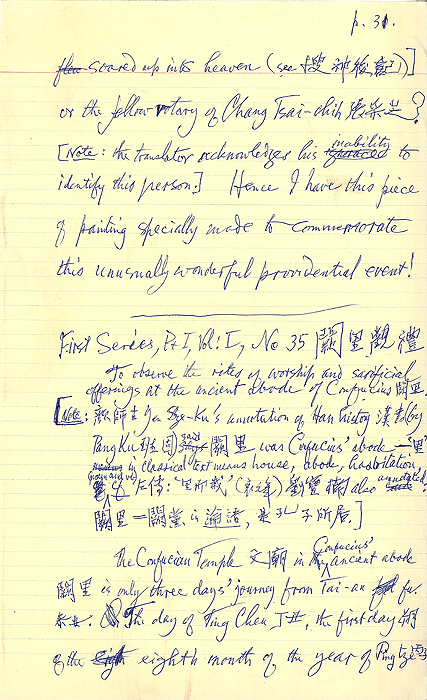 p. 31.
flew soared up into heaven (see 搜神後記)]
or the fellow votary of Chang Tsai-chih 張采芝?
[Note: the translator acknowledges his ignorance inability to
identify this person.] Hence I have this piece
of painting specially made to commemorate
this unusually wonderful providential event!
First Series, Pt I, Vol: I, No 35 闕里觀禮
To observe the rites of worship and sacrificial
offerings at the ancient abode of Confucius 闕里.
[Note: 顏師古 Yen Sze-Ku's annotation of Han History 漢書 (by
Pang Ku 班固 said 闕里 was Confucius' abode — "里"
in classical text means house, abode, habitation
左傳: "里而栽" 劉寶楠 also annotated:
闕里 = 闕黨 is 論語, 是孔子所居.]
The Confucian Temple 文廟 in Confucius' ancient abode
闕里 is only three days' journey from Tai-an fu.
泰安. The day of Ting Chen 丁丑, the first day 朔
of the eighth month of the year of Ping tze 丙子